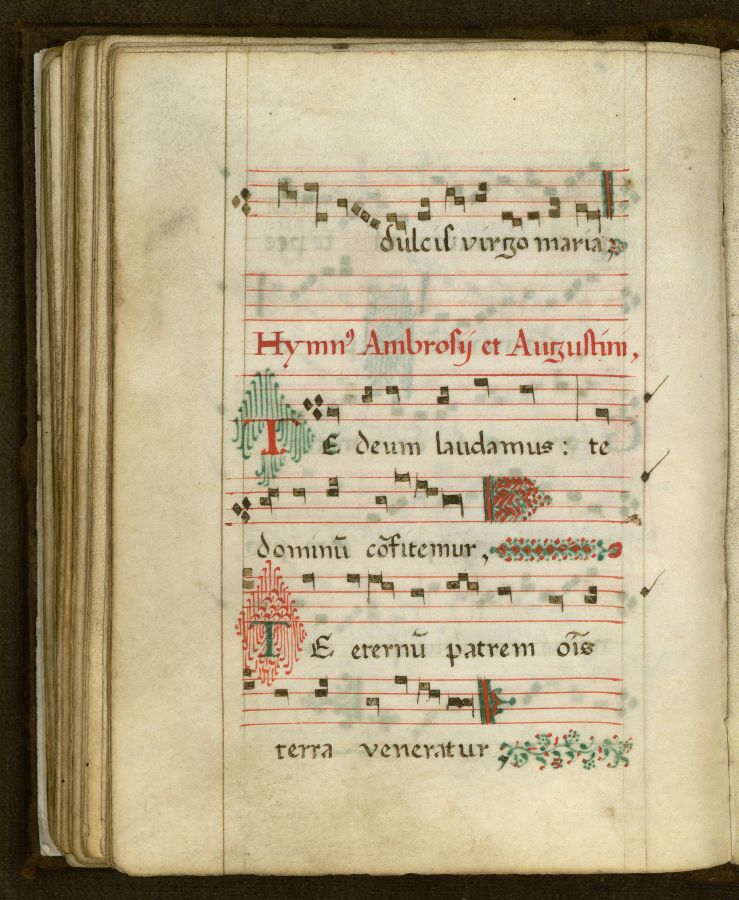 dulcis virgo maria
Hymnꝰ Ambrosij et Augustini,
TE deum laudamus: te
dominū cōfitemur,
TE eternū patrem oīs
terra veneratur